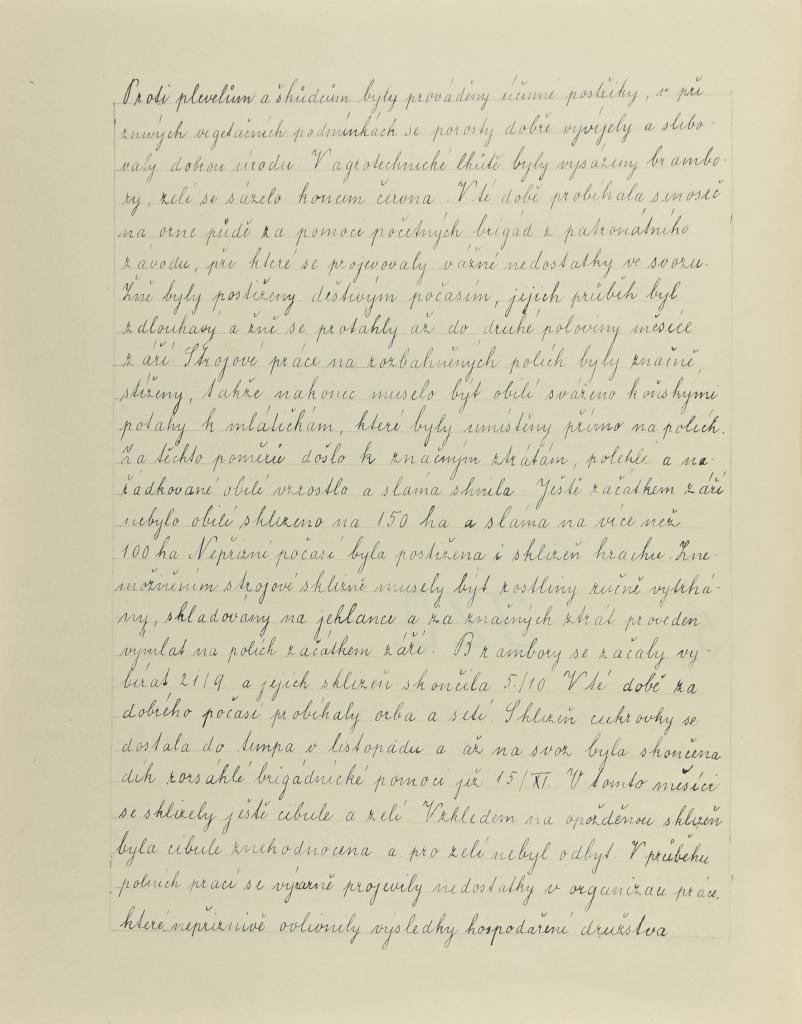 Proti plevelům a škůdcům byly prováděny účinné postřiky, v pří
znivých vegetačních podmínkách se porosty dobře vyvíjely a slibo-
valy dobrou úrodu. V agrotechnické lhůtě byly vysázeny brambo-
ry, zelí se sázelo koncem června. V té době probíhala senoseč
na orné půdě za pomoci početných brigád z patronátního
závodu, při které se projevovaly vážné nedostatky ve svozu.
Žně byly postiženy deštivým počasím, jejich průběh byl
zdlouhavý a žně se protáhly až do druhé poloviny měsíce
září. Strojové práce na rozbahněných polích byly značně
stíženy, takže nakonec muselo být obilí sváženo koňskými
potahy k mlátičkám, které byly umístěny přímo na polích.
Za těchto poměrů došlo k značným ztrátám, polehlé a na-
řádkované obilí vzrostlo a sláma shnila. Ještě začátkem září
nebylo obilí sklizeno na 150 ha a sláma na více než
100 ha. Nepřízní počasí byla postižena i sklizeň hrachu. Zne-
možněním strojové sklizně musely být rostliny ručně vytrhá-
ny, skladovány na jehlance a za značných ztrát proveden
výmlat na polích začátkem září. Brambory se začaly vy-
bírat 21/9. a jejich sklizeň skončila 5./10. V té době za
dobrého počasí probíhaly orba a setí. Sklizeň cukrovky se
dostala do tempa v listopadu a až na svoz byla skončena
dík rozsáhlé brigádnické pomoci již 15/XI. V tomto měsíci
se sklízely ještě cibule a zelí. Vzhledem na opožděnou sklizeň
byla cibule znehodnocena a pro zelí nebyl odbyt. V průběhu
polních prací se výrazně projevily nedostatky v organizaci práce,
které nepříznivě ovlivnily výsledky hospodaření družstva.